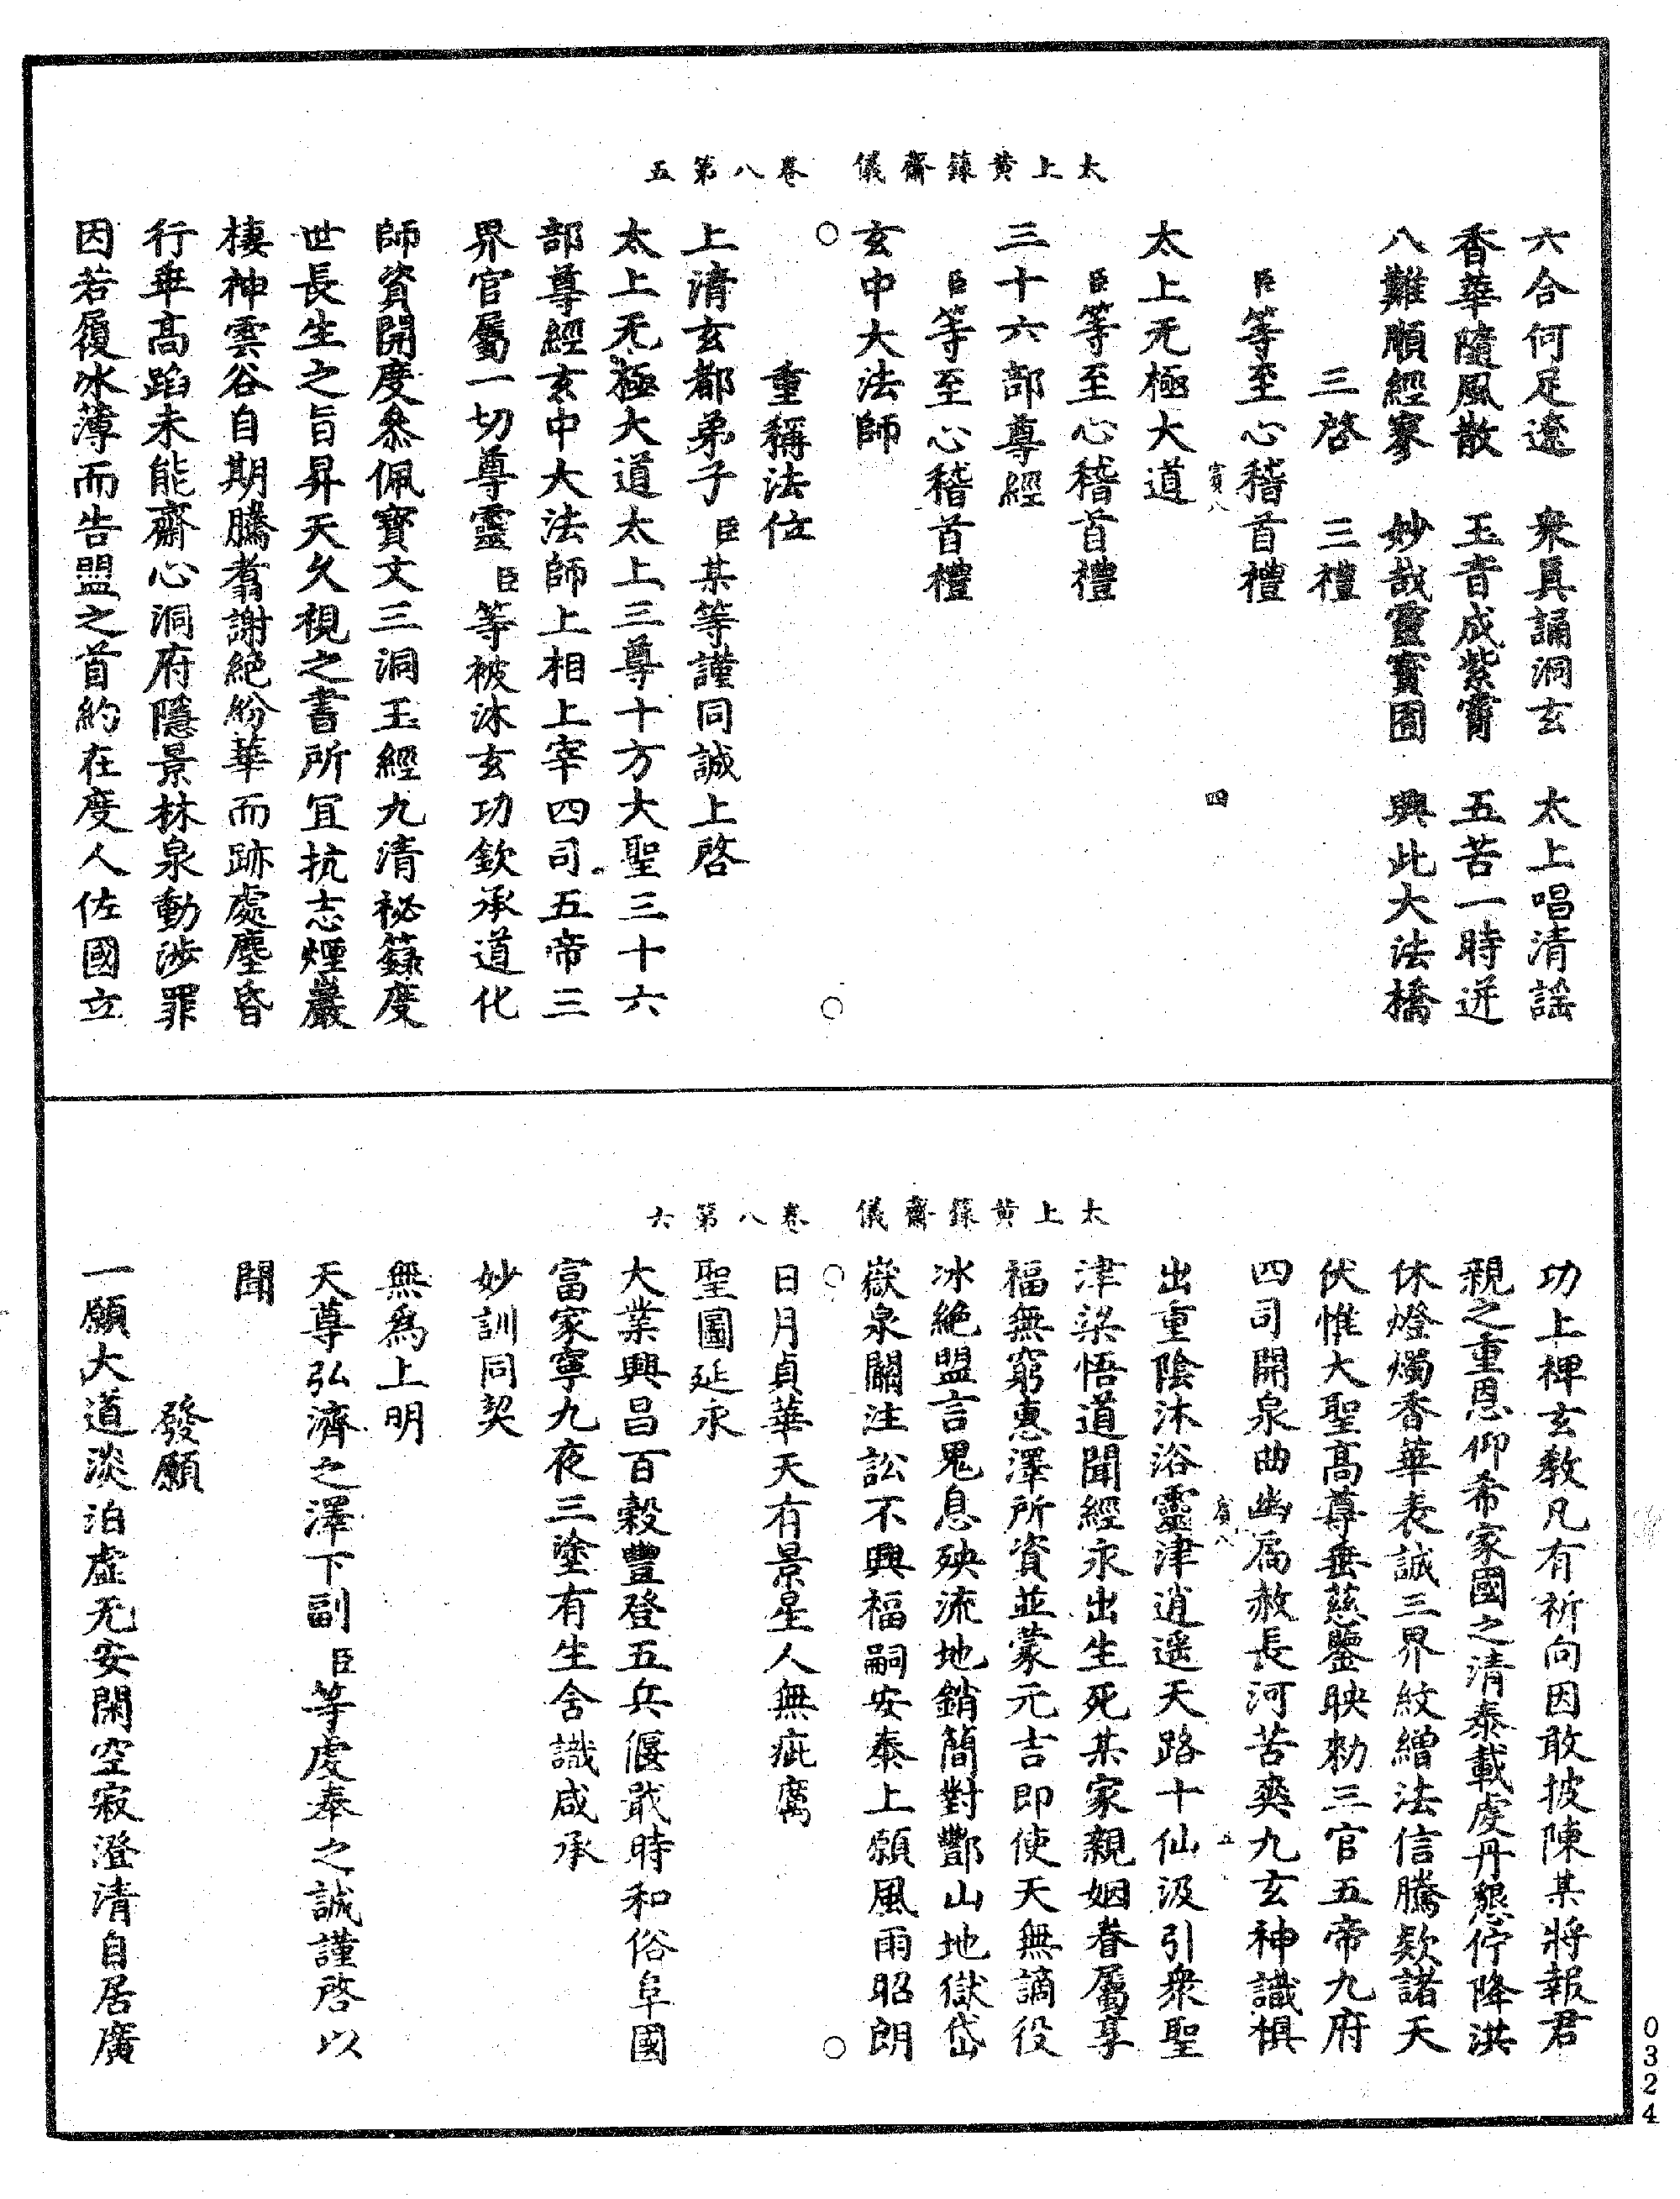 太上黄籙齋儀　卷八第五
六合何足遼　衆真誦洞玄　太上唱清謡
香華隨風散　玉音成紫霄　五苦一時迸
八難順經寥　妙哉靈寶囿　興此大法橋
三啓　三禮
臣等至心稽首禮
賓八　四
太上无極大道
臣等至心稽首禮
三十六部尊經
臣等至心稽首禮
玄中大法師
重稱法位
上清玄都弟子臣某等謹同誠上啓
太上无極大道太上三尊十方大聖三十六
部尊經玄中大法師上相上宰四司五帝三
界官屬一切尊靈臣等被沐玄功欽承道化
師資開度叅佩寶文三洞玉經九清祕籙度
世長生之旨昇天久視之書所宜抗志煙巖
棲神雲谷自期騰翥謝絶紛華而跡處塵昏
行乖高蹈未能齋心洞府隱景林泉動涉罪
因若履冰薄而告盟之首約在度人佐國立
太上黄籙齋儀　卷八第六
功上裨玄教凡有祈向因敢披陳某將報君
親之重恩仰希家國之清泰載虔丹懇佇降洪
休燈燭香華表誠三界紋繒法信騰欵諸天
伏惟大聖高尊垂慈鑒映勑三官五帝九府
四司開泉曲幽扃赦長河苦爽九玄神識俱
賓八　五
出重陰沐浴靈津逍遥天路十仙汲引衆聖
津梁悟道聞經永出生死某家親姻眷屬享
福無窮惠澤所資並蒙元吉即使天無謫役
冰絶盟言鬼息殃流地銷簡對酆山地獄岱
嶽泉關注訟不興福嗣安泰上願風雨昭朗
日月貞華天有景星人無疵癘
聖圖延永
大業興昌百穀豐登五兵偃戢時和俗阜國
富家寧九夜三塗有生含識咸承
妙訓同契
無爲上明
天尊弘濟之澤下副臣等虔奉之誠謹啓以
聞
發願
一願大道淡泊虚无安閑空寂澄清自居廣
0324